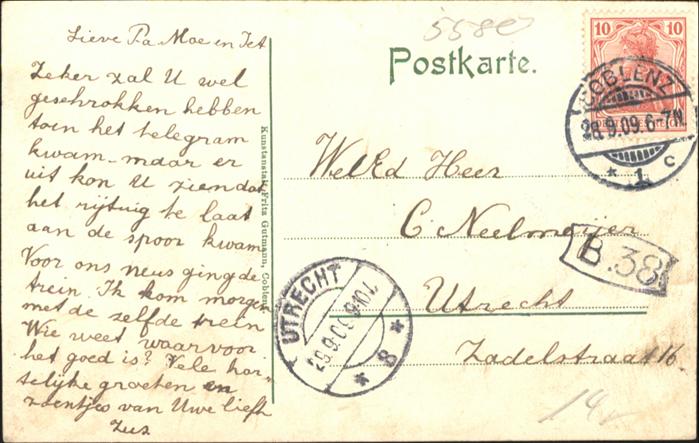 Lieve Pa Moe en Jet
Zeker zal U wel
geschrokken hebben
toen het telegram
kwam - maar er
uit kon U zien dat
het rijtuig te laat
aan de spoor kwam
Voor ons neus ging de
trein. Ik kom morgen
met de zelfde trein
Wie weet waarvoor
het goed is? Vele har-
telijke groeten en
zoentjes van Uwe liefh
Zus
Kunstanstalt Fritz Gutmann, Coblenz
5580
Postkarte.
10 10
COBLENZ
28.9.09.6-7N.
* 1 c
WelEd Heer
C Neelmeijer
B.38
Utrecht
Zadelstraat 16.
UTRECHT
* 8 *
14